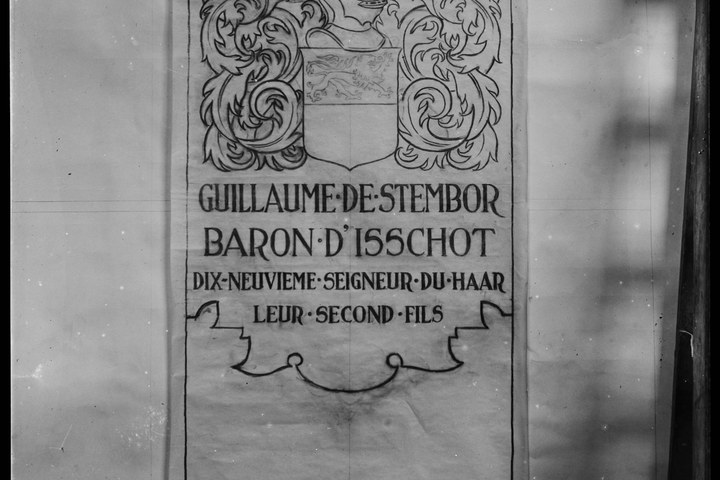 GUILLAUME·DE·STEMBOR
BARON·D'ISSCHOT
DIX-NEUVIEME·SEIGNEUR·DU·HAAR
LEUR·SECOND·FILS